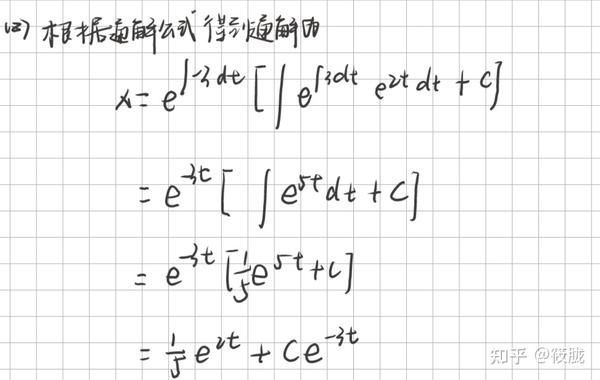 (2) 根据通解公式得到通解为
x = e^{∫-3dt} [ ∫ e^{∫3dt} e^{2t} dt + C ]
= e^{-3t} [ ∫ e^{5t} dt + C ]
= e^{-3t} [ \frac{1}{5} e^{5t} + C ]
= \frac{1}{5} e^{2t} + C e^{-3t}
知乎 @筱胧